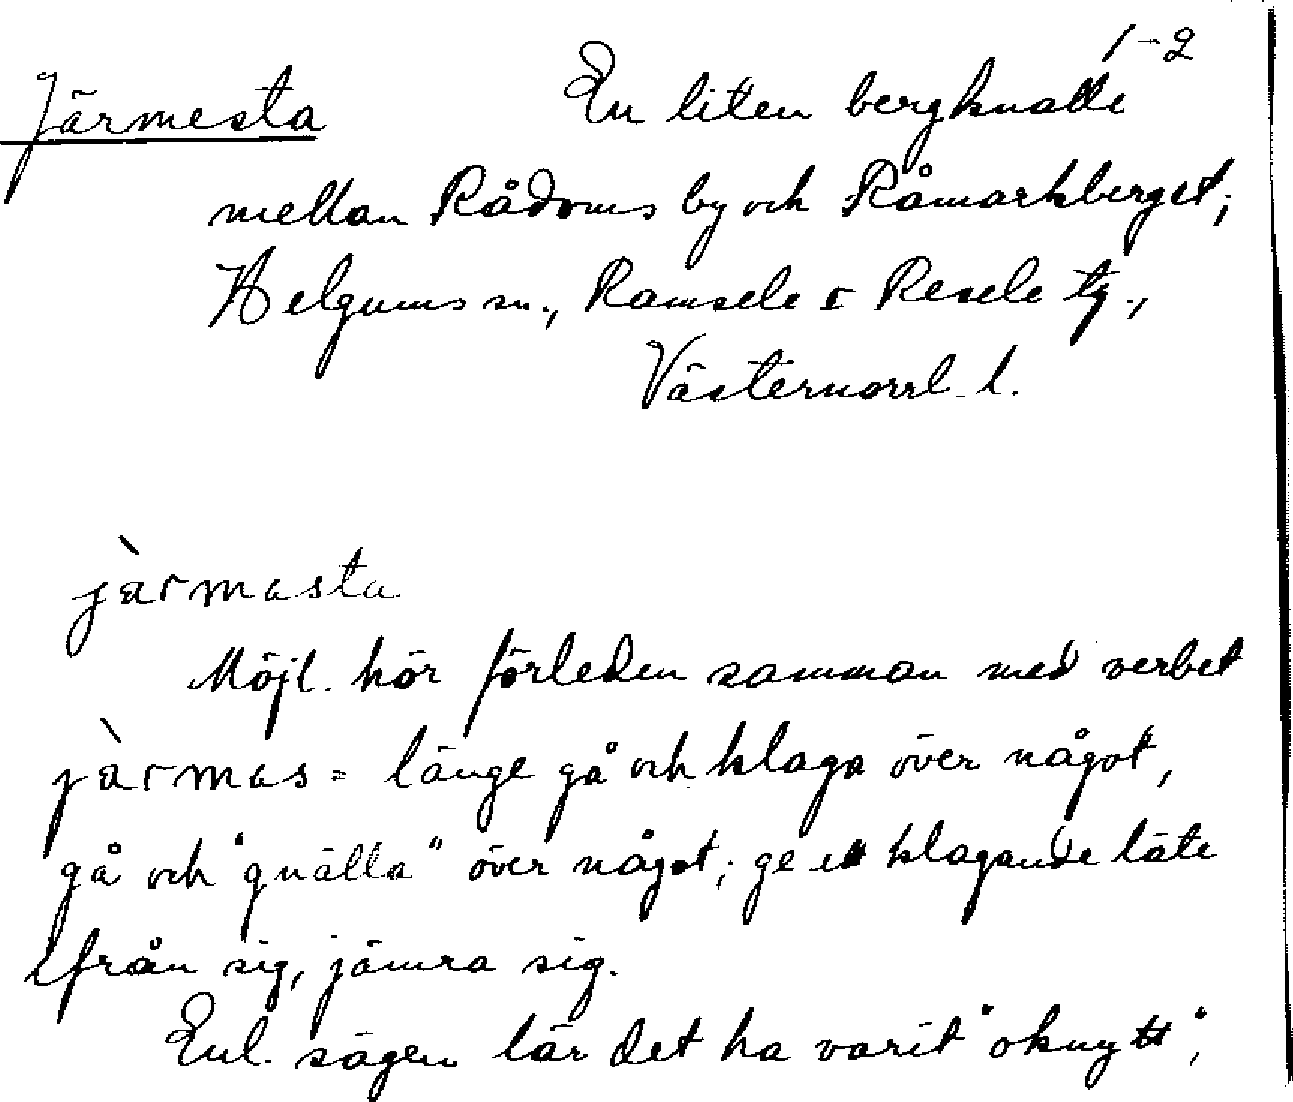 1-2
Järmesta En liten bergknatte
mellan Rådoms by och Råmarkberget;
Helgums sn., Ramsele o Resele tg.,
Västernorrl. l.
jàrmasta
Möjl. hör förleden samman med verbet
jàrmas = länge gå och klaga över något,
gå och "gnälla" över något; ge ett klagande läte
ifrån sig, jämra sig.
Enl. sägen lär det ha varit "oknytt",